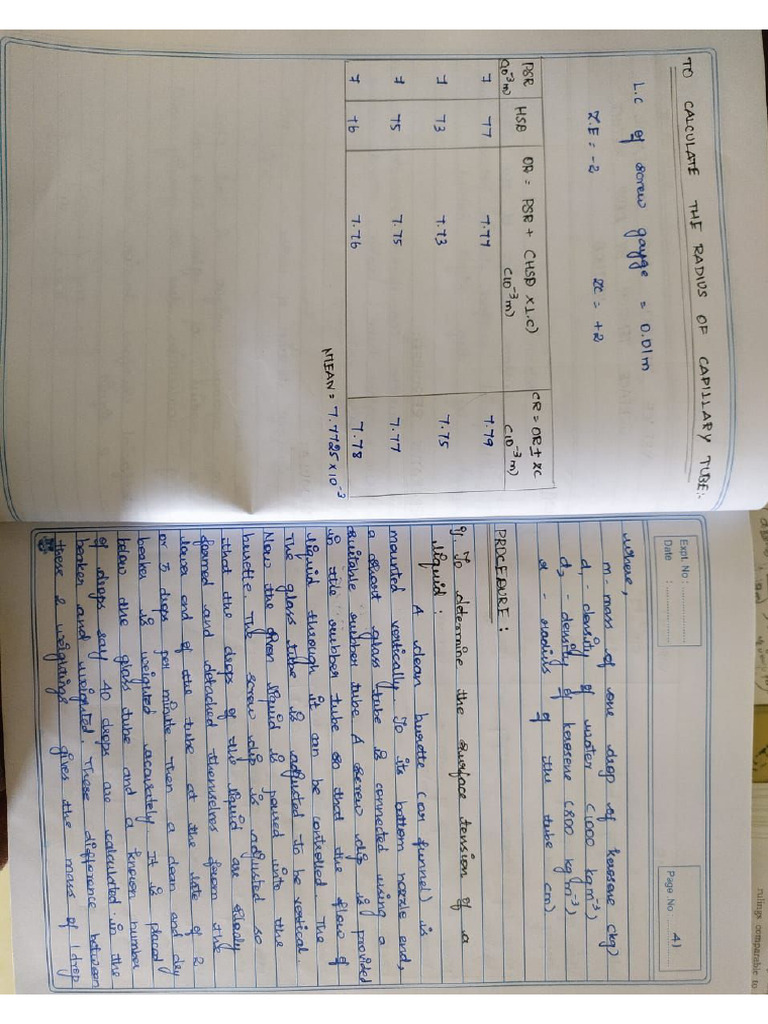 TO CALCULATE THE RADIUS OF CAPILLARY TUBE:-
L.C of screw gauge = 0.01m
Z.E = -2 ZC = +2
PSR (10⁻³m) HSD OR = PSR + (HSD × L.C) (10⁻³m) CR = OR ± ZC (10⁻³m)
7 77 7.77 7.79
7 73 7.73 7.75
7 75 7.75 7.77
7 76 7.76 7.78
MEAN = 7.7725 × 10⁻³
Expt. No :
Date :
Page No. 41
where,
m - mass of one drop of kerosene (kg)
d₁ - density of water (1000 kgm⁻³)
d₂ - density of kerosene (800 kgm⁻³)
r - radius of the tube (m)
PROCEDURE:
To determine the surface tension of a
liquid:
A clean burette (or funnel) is
mounted vertically. To its bottom nozzle end,
a short glass tube is connected using a
suitable rubber tube. A screw clip is provided
in the rubber tube so that the flow of
liquid through it can be controlled. The
The glass tube is adjusted to be vertical.
Now the given liquid is poured into the
burette. The screw clip is adjusted so
that the drops of the liquid are slowly
formed and detached themselves from the
lower end of the tube at the rate of 2
or 3 drops per minute. Then a clean and dry
beaker is weighted accurately. It is placed
below the glass tube and a known number
of drops say 40 drops are calculated in the
beaker and weighted. These difference between
these 2 weightings gives the mass of 1 drop
rulings comparable to